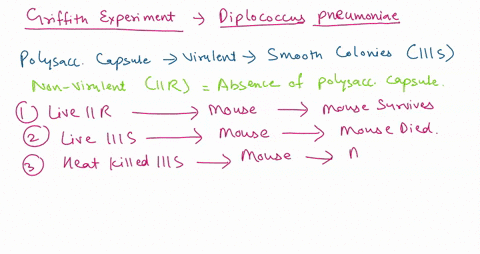 Griffith Experiment → Diplococcus pneumoniae
Polysacc. Capsule → Virulent → Smooth Colonies (III S)
Non-virulent (II R) = Absence of polysacc. capsule.
① Live II R → Mouse → Mouse Survives
② Live III S → Mouse → Mouse Died.
③ Heat killed III S → Mouse →